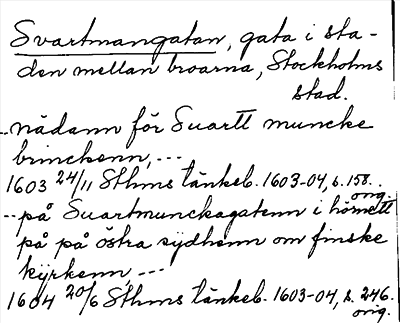 Svartmangatan, gata i sta-
den mellan broarna, Stockholms
stad.
..nådann för Suartt muncke
brinckenn, ---
1603 24/11 Sthms tänkeb. 1603-04, s. 158.
orig.
--på Suartmunckagatenn i hörnett
på på östra sydhenn om finske
kyrkenn, ---
1604 20/6 Sthms tänkeb. 1603-04, s. 246.
orig.